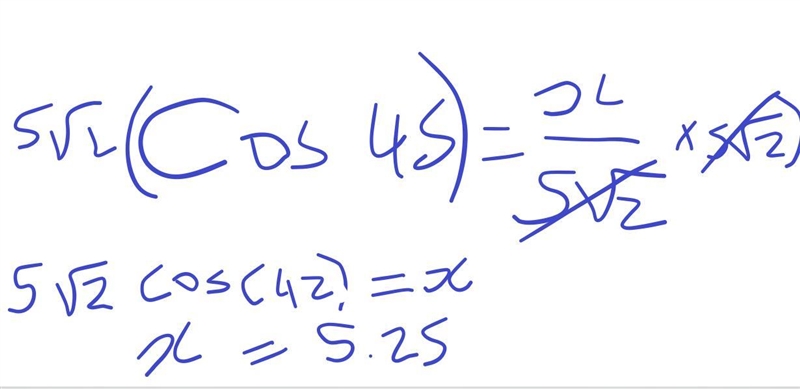 5√2 (Cos 45) = x/5√2 × 5√2)
5√2 cos(42) = x
x = 5.25